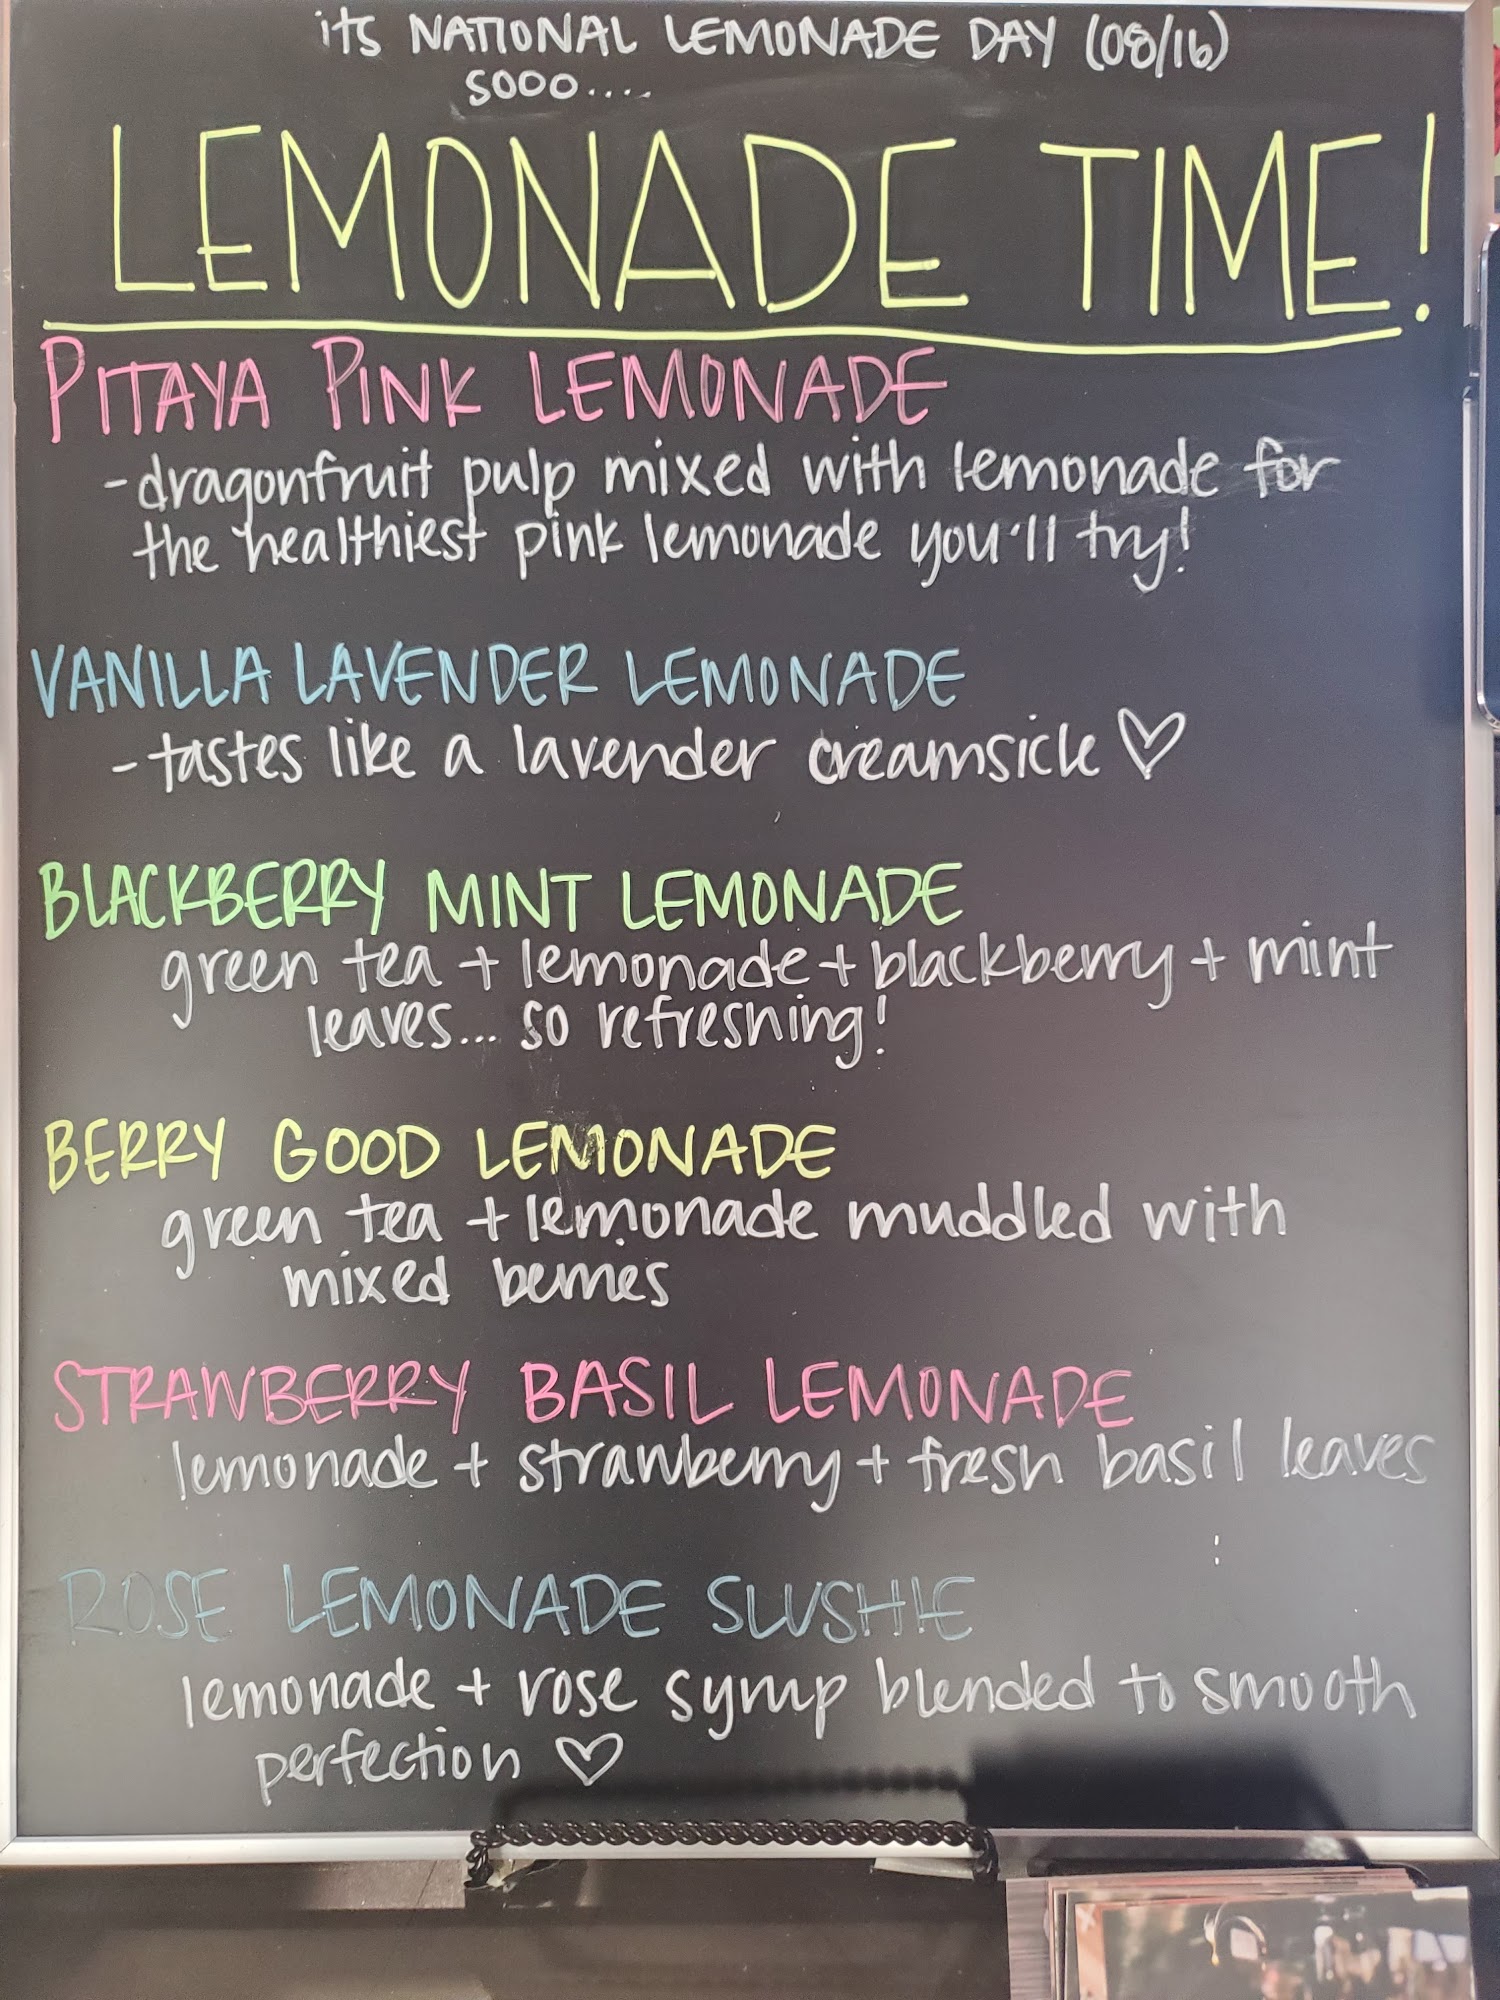 its NATIONAL LEMONADE DAY (08/16)
sooo....
LEMONADE TIME!
PITAYA PINK LEMONADE
-dragonfruit pulp mixed with lemonade for
the healthiest pink lemonade you'll try!
VANILLA LAVENDER LEMONADE
-tastes like a lavender creamsicle ♡
BLACKBERRY MINT LEMONADE
green tea + lemonade + blackberry + mint
leaves... so refreshing!
BERRY GOOD LEMONADE
green tea + lemonade muddled with
mixed berries
STRAWBERRY BASIL LEMONADE
lemonade + strawberry + fresh basil leaves
ROSE LEMONADE SLUSHIE
lemonade + rose syrup blended to smooth
perfection ♡